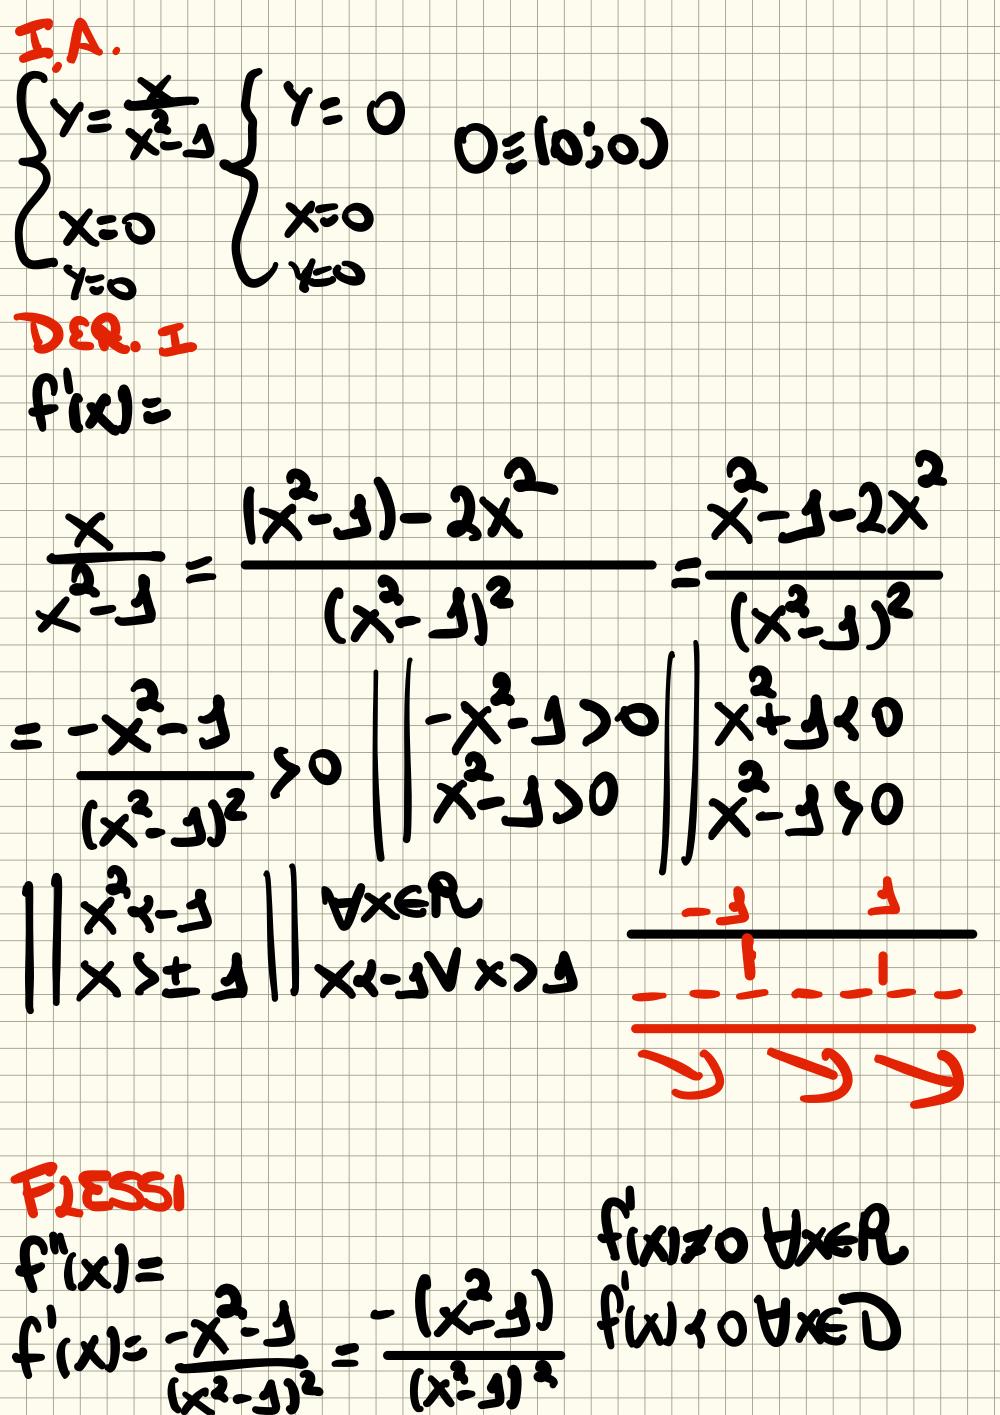 I.A.
{ y = x/(x²-1) { y = 0
x=0 x=0 O≡(0;0)
y=0 y=0
DER. I
f'(x)=
x/(x²-1) = ((x²-1)-2x²)/(x²-1)² = (x²-1-2x²)/(x²-1)²
= (-x²-1)/(x²-1)² >0 || -x²-1>0 || x²+1<0
x²-1>0 x²-1>0
|| x²<-1 || ∀x∈R -1 1
x>±1 x<-1 ∨ x>1
FLESSI
f''(x)= f'(x)≠0 ∀x∈R
f'(x)= (-x²-1)/(x²-1)² = -(x²-1)/(x²-1)² f'(x)<0 ∀x∈D